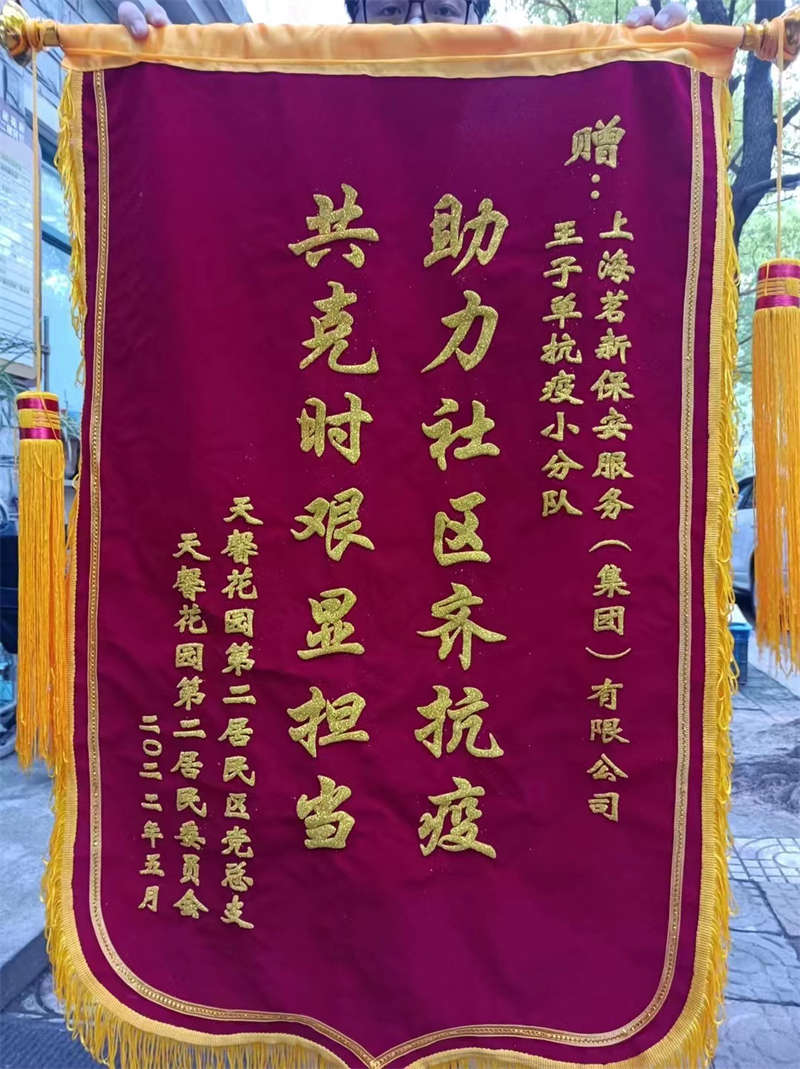 赠：
上海茗新保安服务（集团）有限公司
王子单抗疫小分队
助力社区齐抗疫
共克时艰显担当
天馨花园第二居民区党总支
天馨花园第二居民委员会
二〇二二年五月